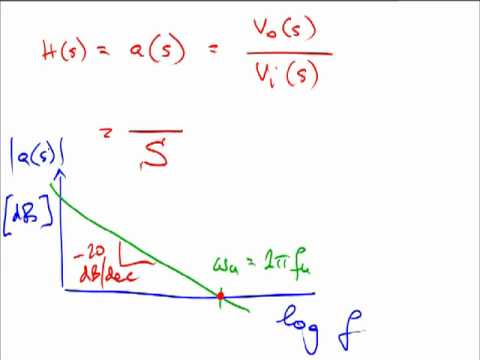 H(s) = a(s) = Vo(s) / Vi(s)
= — / S
|a(s)|
[dB]
-20
dB/dec
ωu = 2πfu
log f